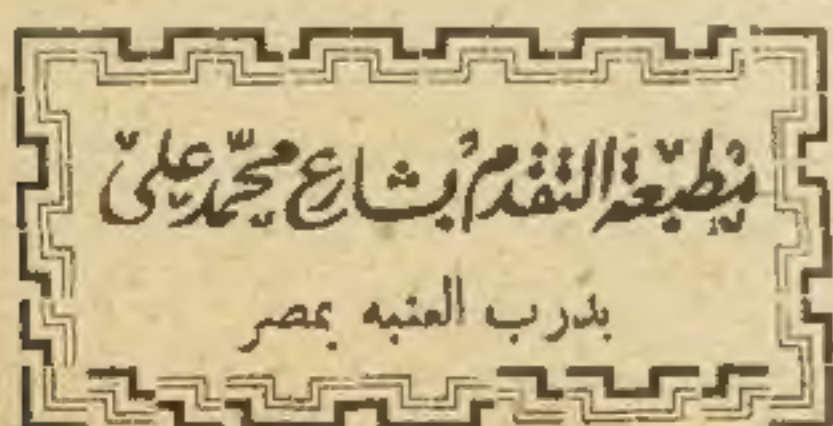 مطبعة التقدم بشارع محمد علي
بدرب العنبه بمصر